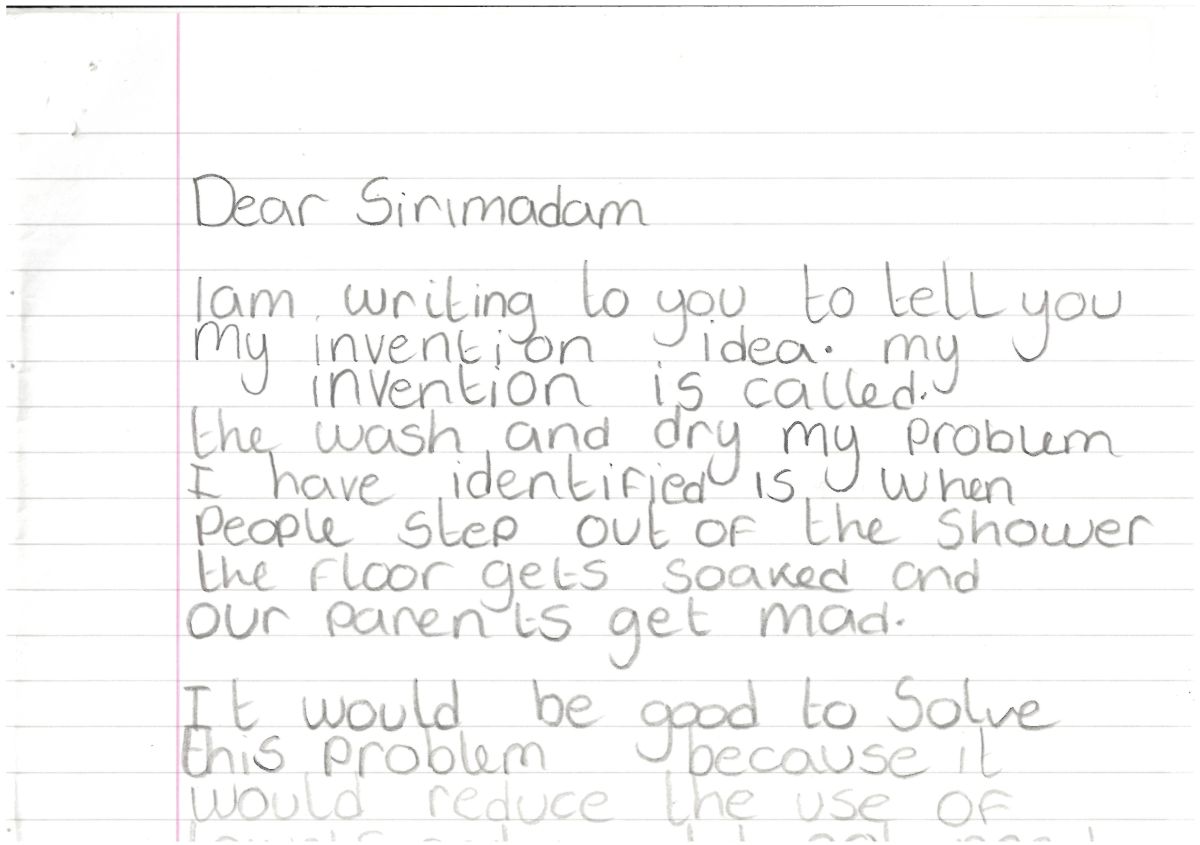 Dear Sir/madam
I am writing to you to tell you
my invention idea. my
invention is called.
the wash and dry my problem
I have identified is when
people step out of the shower
the floor gets soaked and
our parents get mad.
It would be good to solve
this problem because it
would reduce the use of